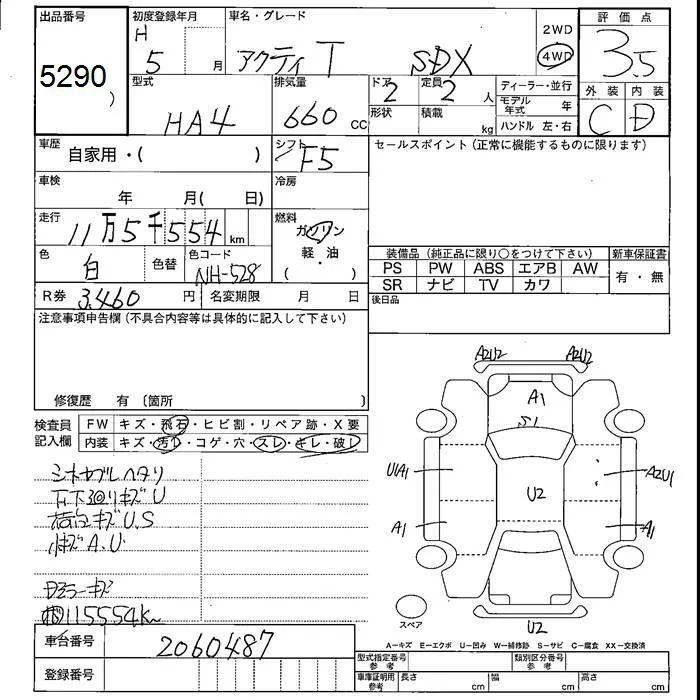 出品番号
5290
)
初度登録年月
H
5 月
車名・グレード
アクティ T SDX
2WD
4WD
評価点
3.5
外装 内装
C D
型式
HA4
排気量
660 CC
ドア
2
形状
定員
2 人
積載
kg
ディーラー・並行
モデル年式 年
ハンドル 左・右
車歴
自家用・( )
シフト
F5
セールスポイント(正常に機能するものに限ります)
車検
年 月( 日)
冷房
走行
11万5千554 km
燃料
ガソリン
軽・油
( )
色
白
色替
色コード
NH-528
装備品(純正品に限り○をつけて下さい)
新車保証書
PS PW ABS エアB AW
SR ナビ TV カワ
有・無
R券 3,460 円
名変期限 月 日
後日品
注意事項申告欄(不具合内容等は具体的に記入して下さい)
修復歴 有 〔箇所 〕
検査員
記入欄
FW キズ・飛石・ヒビ割・リペア跡・X要
内装 キズ・汚れ・コゲ・穴・スレ・キレ・破し
下廻りキズU
荷台キズU.S
小キズA.U
115554K
A2U2 A2U2
A1
S1
U1A1
U2
A2U1
A1
A1
U2
スペア
A-キズ E-エクボ U-凹み W-補修跡 S-サビ C-腐食 XX-交換済
車台番号
2060487
登録番号
型式指定番号
参考
類別区分番号
参考
車庫証明用
参考
長さ cm
幅 cm
高さ cm